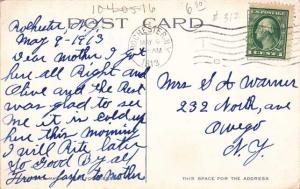 10-4-05-16
6 30
# 312
POST CARD
ROCHESTER, N.Y.
MAY 9
AM
1913
1 CENT 1
Rochester
May 9-1913
Dear Mother I got
here all Right and
Olive and the Rest
was glad to see
Me it is cold up
here this morning
I will Rite later
So Good By all
From to Mother
Mrs S A Warner
232 North ave
Owego
N.Y.
THIS SPACE FOR THE ADDRESS